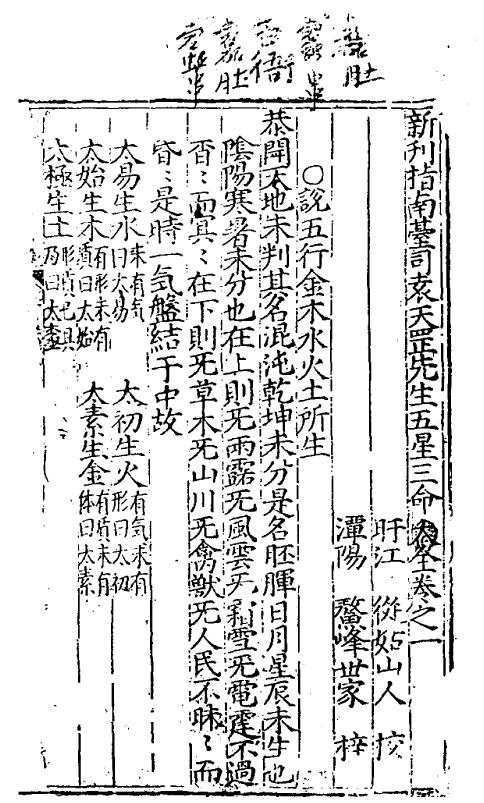 新刊指南臺司袁天罡先生五星三命大全卷之一
盱江 從姑山人 校
潭陽 鰲峰世家 梓
○說五行金木水火土所生
恭聞天地未判其名混沌乾坤未分是名胚腪日月星辰未生也
陰陽寒暑未分也在上則旡雨露旡風雲旡霜雪旡電霆不過
杳〻而冥〻在下則旡草木旡山川旡禽獸旡人民不昧〻而
昏〻是時一氣盤結于中故
太易生水 未有氣曰太易 太初生火 有氣未有形曰太初
太始生木 有形未有質曰太始 太素生金 有質未有体曰太素
太極生土 形質已具乃曰太極